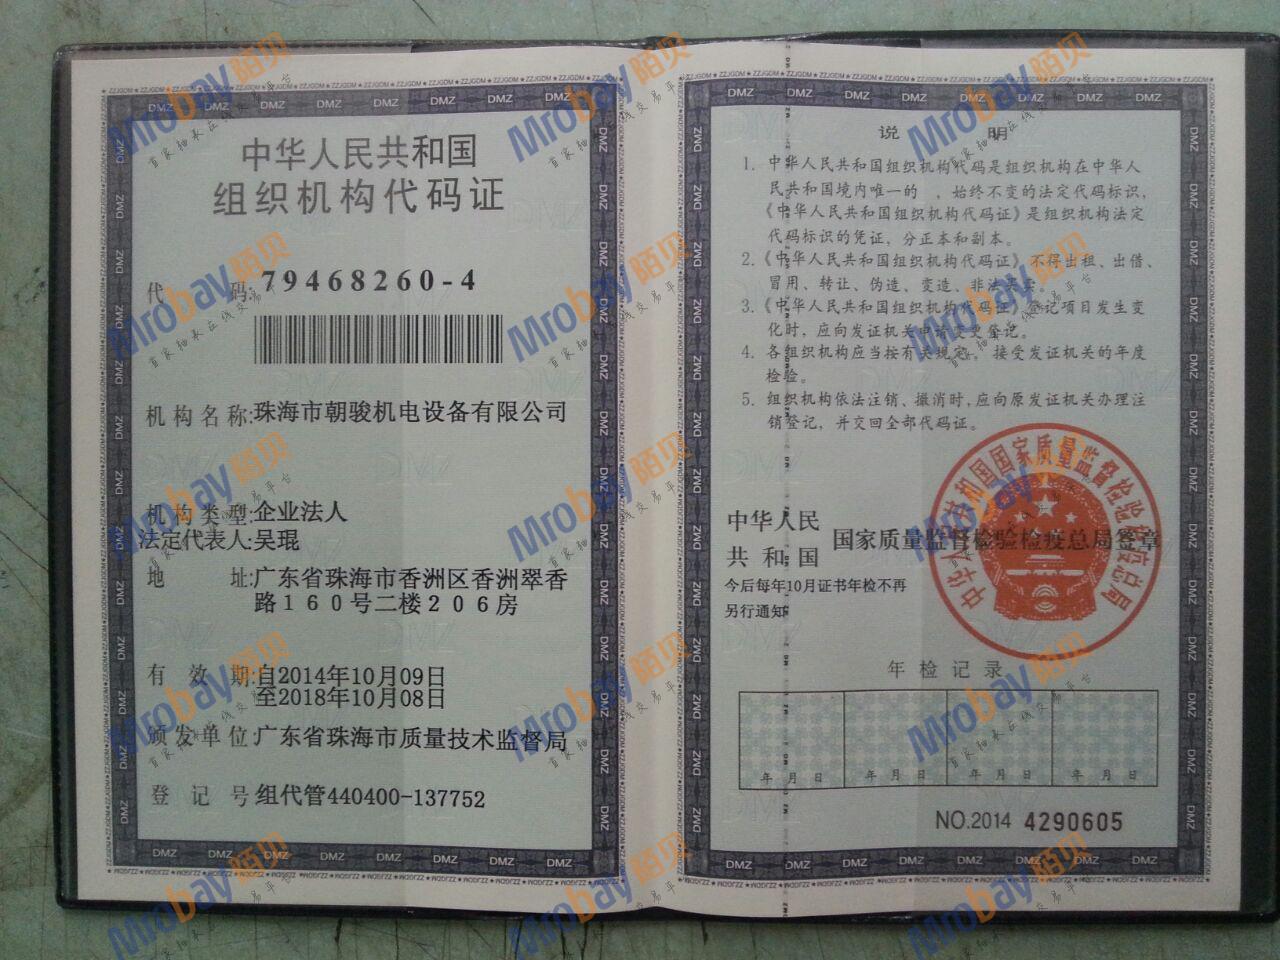 中华人民共和国
组织机构代码证
代 码:79468260-4
机构名称:珠海市朝骏机电设备有限公司
机构类型:企业法人
法定代表人:吴琨
地 址:广东省珠海市香洲区香洲翠香
路160号二楼206房
有 效 期:自2014年10月09日
至2018年10月08日
颁发单位:广东省珠海市质量技术监督局
登 记 号 组代管440400-137752
说 明
1. 中华人民共和国组织机构代码是组织机构在中华人
民共和国境内唯一的 、始终不变的法定代码标识,
《中华人民共和国组织机构代码证》是组织机构法定
代码标识的凭证，分正本和副本。
2.《中华人民共和国组织机构代码证》不得出租、出借、
冒用、转让、伪造、变造、非法买卖。
3.《中华人民共和国组织机构代码证》登记项目发生变
化时，应向发证机关申请变更登记。
4. 各组织机构应当按有关规定，接受发证机关的年度
检验。
5. 组织机构依法注销、撤消时，应向原发证机关办理注
销登记，并交回全部代码证。
中华人民
共和国 国家质量监督检验检疫总局签章
今后每年10月证书年检不再
另行通知
中华人民共和国国家质量监督检验检疫总局
年检记录
年 月 日 年 月 日 年 月 日 年 月 日
NO.2014 4290605
DMZ
ZZJGDM
Mrobay陌贝
首家轴承在线交易平台